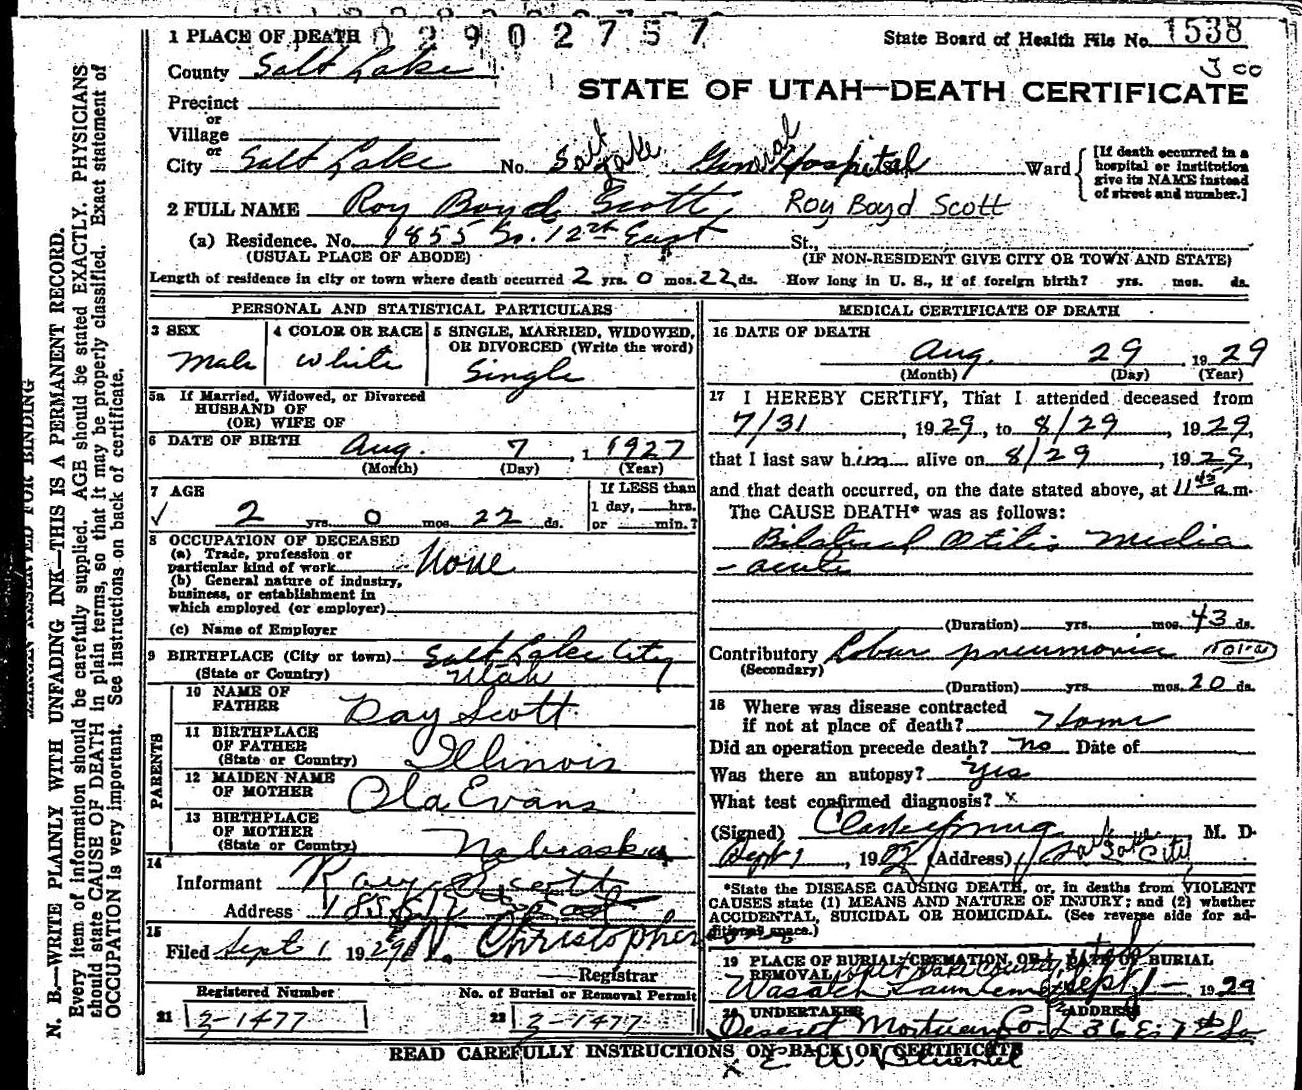 02902757
1 PLACE OF DEATH
State Board of Health File No. 1538
County Salt Lake
300
STATE OF UTAH—DEATH CERTIFICATE
Precinct
or
Village
or
City Salt Lake No. Salt Lake General Hospital Ward
[If death occurred in a hospital or institution give its NAME instead of street and number.]
2 FULL NAME Roy Boyd Scott, Roy Boyd Scott
(a) Residence. No. 1855 So. 12th East St.,
(USUAL PLACE OF ABODE) (IF NON-RESIDENT GIVE CITY OR TOWN AND STATE)
Length of residence in city or town where death occurred 2 yrs. 0 mos. 22 ds. How long in U. S., if of foreign birth? yrs. mos. ds.
PERSONAL AND STATISTICAL PARTICULARS
3 SEX
Male
4 COLOR OR RACE
White
5 SINGLE, MARRIED, WIDOWED, OR DIVORCED (Write the word)
Single
5a If Married, Widowed, or Divorced
HUSBAND OF
(OR) WIFE OF
6 DATE OF BIRTH Aug. 7, 1927
(Month) (Day) (Year)
7 AGE
✓ 2 yrs. 0 mos. 22 ds.
If LESS than
1 day, hrs.
or min.?
8 OCCUPATION OF DECEASED
(a) Trade, profession or
particular kind of work None
(b) General nature of industry,
business, or establishment in
which employed (or employer)
(c) Name of Employer
9 BIRTHPLACE (City or town) Salt Lake City
(State or Country) Utah
PARENTS
10 NAME OF
FATHER Ray Scott
11 BIRTHPLACE
OF FATHER
(State or Country) Illinois
12 MAIDEN NAME
OF MOTHER Ola Evans
13 BIRTHPLACE
OF MOTHER
(State or Country) Nebraska
14
Informant Ray Scott
Address
15
Filed Sept 1 1929 Christopher
Registrar
Registered Number
21 2-1477
No. of Burial or Removal Permit
22 2-1477
MEDICAL CERTIFICATE OF DEATH
16 DATE OF DEATH
Aug. 29 1929
(Month) (Day) (Year)
17 I HEREBY CERTIFY, That I attended deceased from
7/31, 1929, to 8/29, 1929,
that I last saw him alive on 8/29, 1929,
and that death occurred, on the date stated above, at 11 45 a.m.
The CAUSE DEATH* was as follows:
Bilateral Otitis Media
- acute
(Duration) yrs. mos. 43 ds.
Contributory Lobar pneumonia
(Secondary)
(Duration) yrs. mos. 20 ds.
18 Where was disease contracted
if not at place of death? Home
Did an operation precede death? no Date of
Was there an autopsy? Yes
What test confirmed diagnosis? x
(Signed) Clark Young, M. D.
Sept 1, 19 (Address) Salt Lake City
*State the DISEASE CAUSING DEATH, or, in deaths from VIOLENT
CAUSES state (1) MEANS AND NATURE OF INJURY; and (2) whether
ACCIDENTAL, SUICIDAL OR HOMICIDAL. (See reverse side for ad-
ditional space.)
19 PLACE OF BURIAL, CREMATION, OR REMOVAL DATE OF BURIAL
Salt Lake County, Utah
Wasatch Sept 1 - 1929
20 UNDERTAKER ADDRESS
Deseret Mortuary Co. 36 E. 7th So
READ CAREFULLY INSTRUCTIONS ON BACK OF CERTIFICATE
x E. W.
MARGIN RESERVED FOR BINDING
N. B.—WRITE PLAINLY WITH UNFADING INK—THIS IS A PERMANENT RECORD.
Every item of information should be carefully supplied. AGE should be stated EXACTLY. PHYSICIANS
should state CAUSE OF DEATH in plain terms, so that it may be properly classified. Exact statement of
OCCUPATION is very important. See instructions on back of certificate.